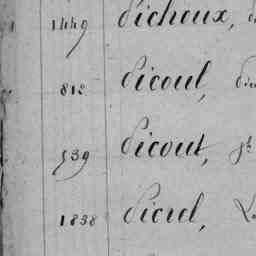 1449 Pichoux,
812 Picoul,
539 Picout,
1838 Picrel,